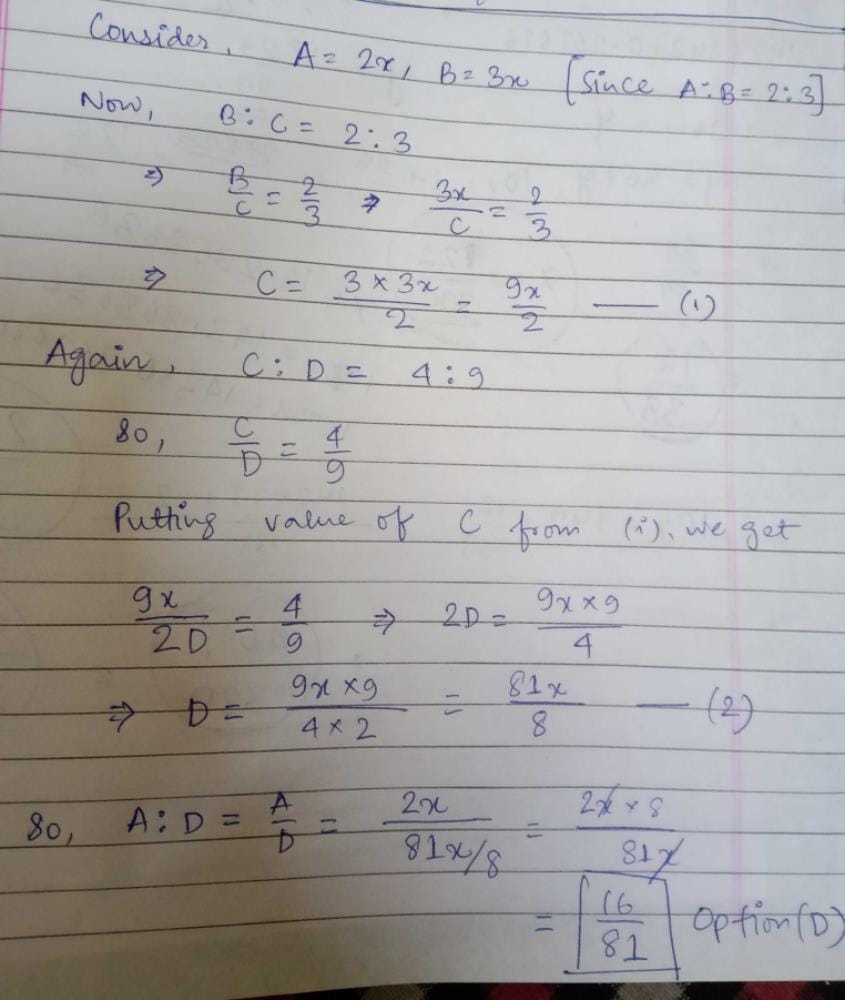 Consider, A = 2x, B = 3x [Since A:B = 2:3]
Now, B : C = 2 : 3
⇒ B/C = 2/3 ⇒ 3x/C = 2/3
⇒ C = 3 × 3x/2 = 9x/2 —— (i)
Again, C : D = 4 : 9
So, C/D = 4/9
Putting value of C from (i), we get
9x/2D = 4/9 ⇒ 2D = 9x × 9/4
⇒ D = 9x × 9/4 × 2 = 81x/8 —— (2)
So, A : D = A/D = 2x/81x/8 = 2x × 8/81x
= 16/81 Option (D)